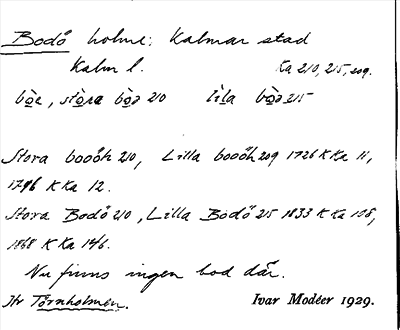 Bodö holme; Kalmar stad
Kalm l. Ka 210, 215, 209.
bòe, stòra bòə 210 lila bòə 215
Stora booöh 210, Lilla booöh 209 1726 K Ka 11,
1796 K Ka 12.
Stora Bodö 210, Lilla Bodö 215 1833 K Ka 108,
1868 K Ka 146.
Nu finns ingen bod där.
Jfr Törnholmen. Ivar Modéer 1929.